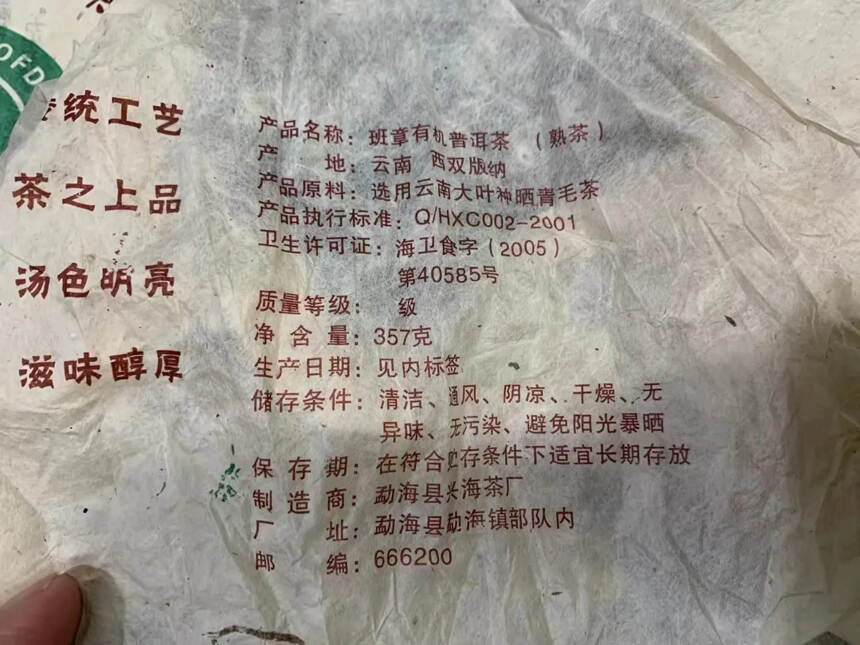 OFD
统工艺
茶之上品
汤色明亮
滋味醇厚
产品名称：班章有机普洱茶（熟茶）
产 地：云南 西双版纳
产品原料：选用云南大叶种晒青毛茶
产品执行标准：Q/HXC002-2001
卫生许可证：海卫食字（2005）
第40585号
质量等级： 级
净 含 量：357克
生产日期：见内标签
储存条件：清洁、通风、阴凉、干燥、无
异味、无污染、避免阳光暴晒
保 存 期：在符合贮存条件下适宜长期存放
制 造 商：勐海县兴海茶厂
厂 址：勐海县勐海镇部队内
邮 编：666200